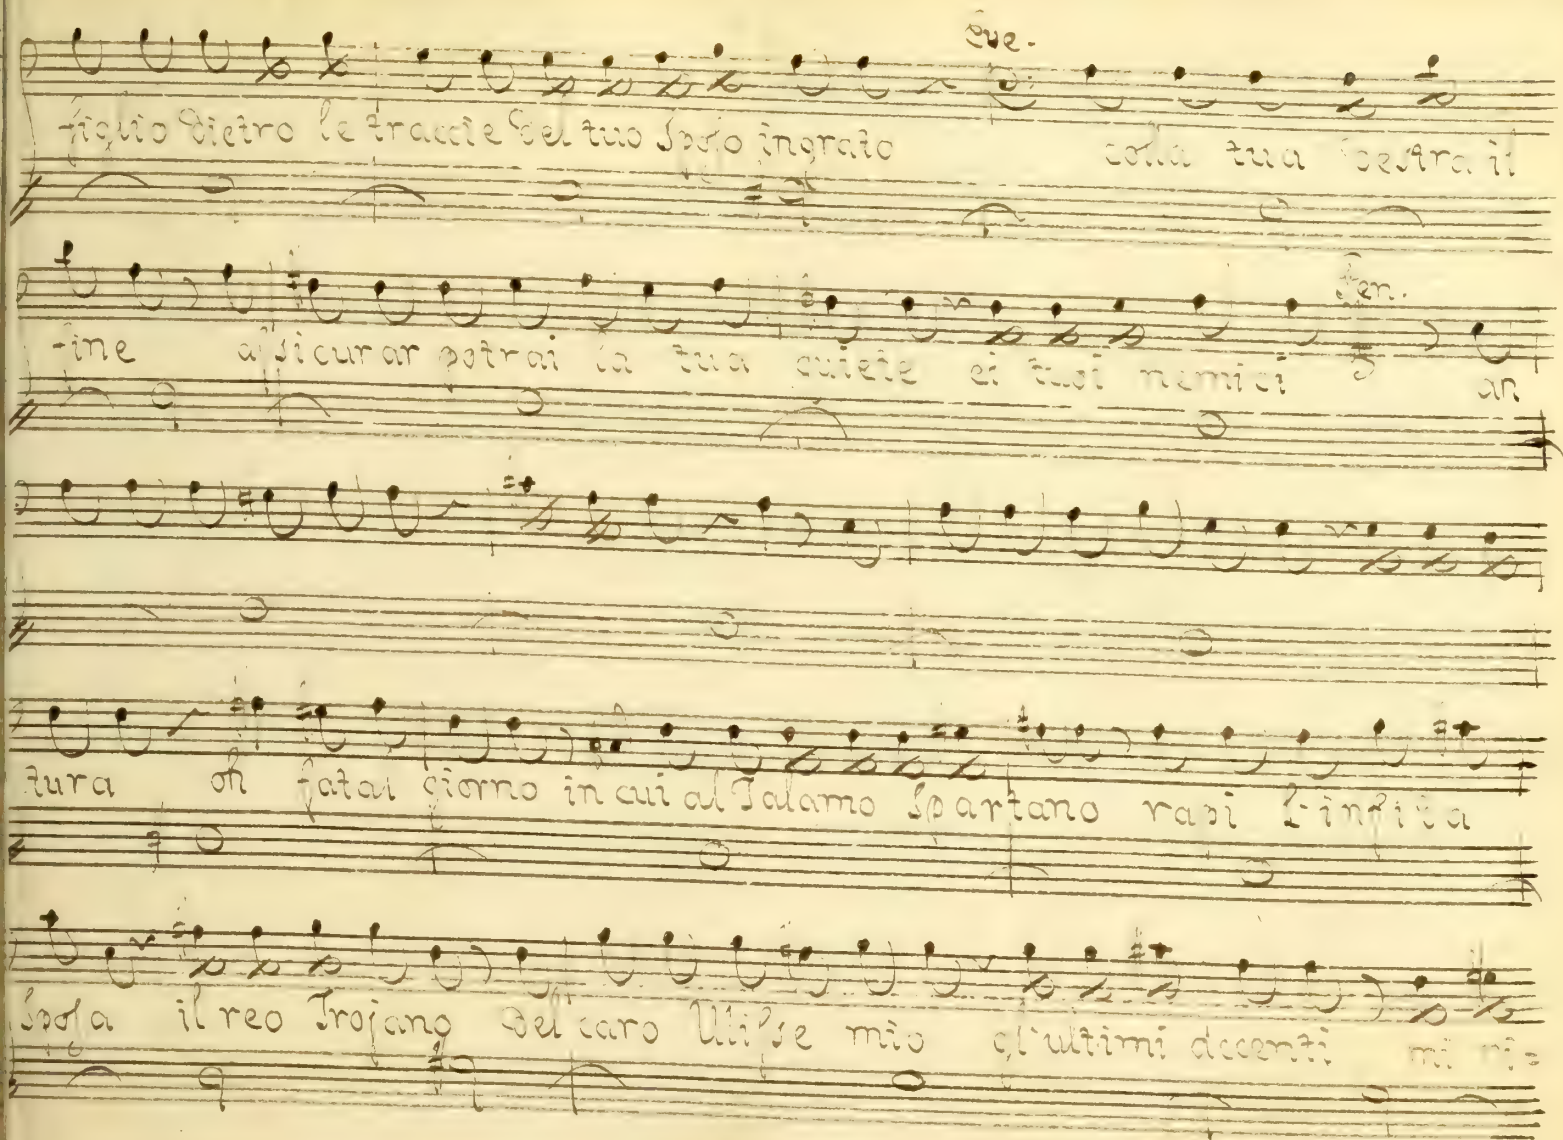 Eve.
figlio dietro le traccie del tuo Sposo ingrato colla tua destra il
Pen.
fine assicurar potrai la tua quiete ei tuoi nemici ah
tura oh fatal giorno in cui al Talamo Spartano rapi l'infida
Sposa il reo Trojano del caro Ulisse mio gl'ultimi accenti mi ri=